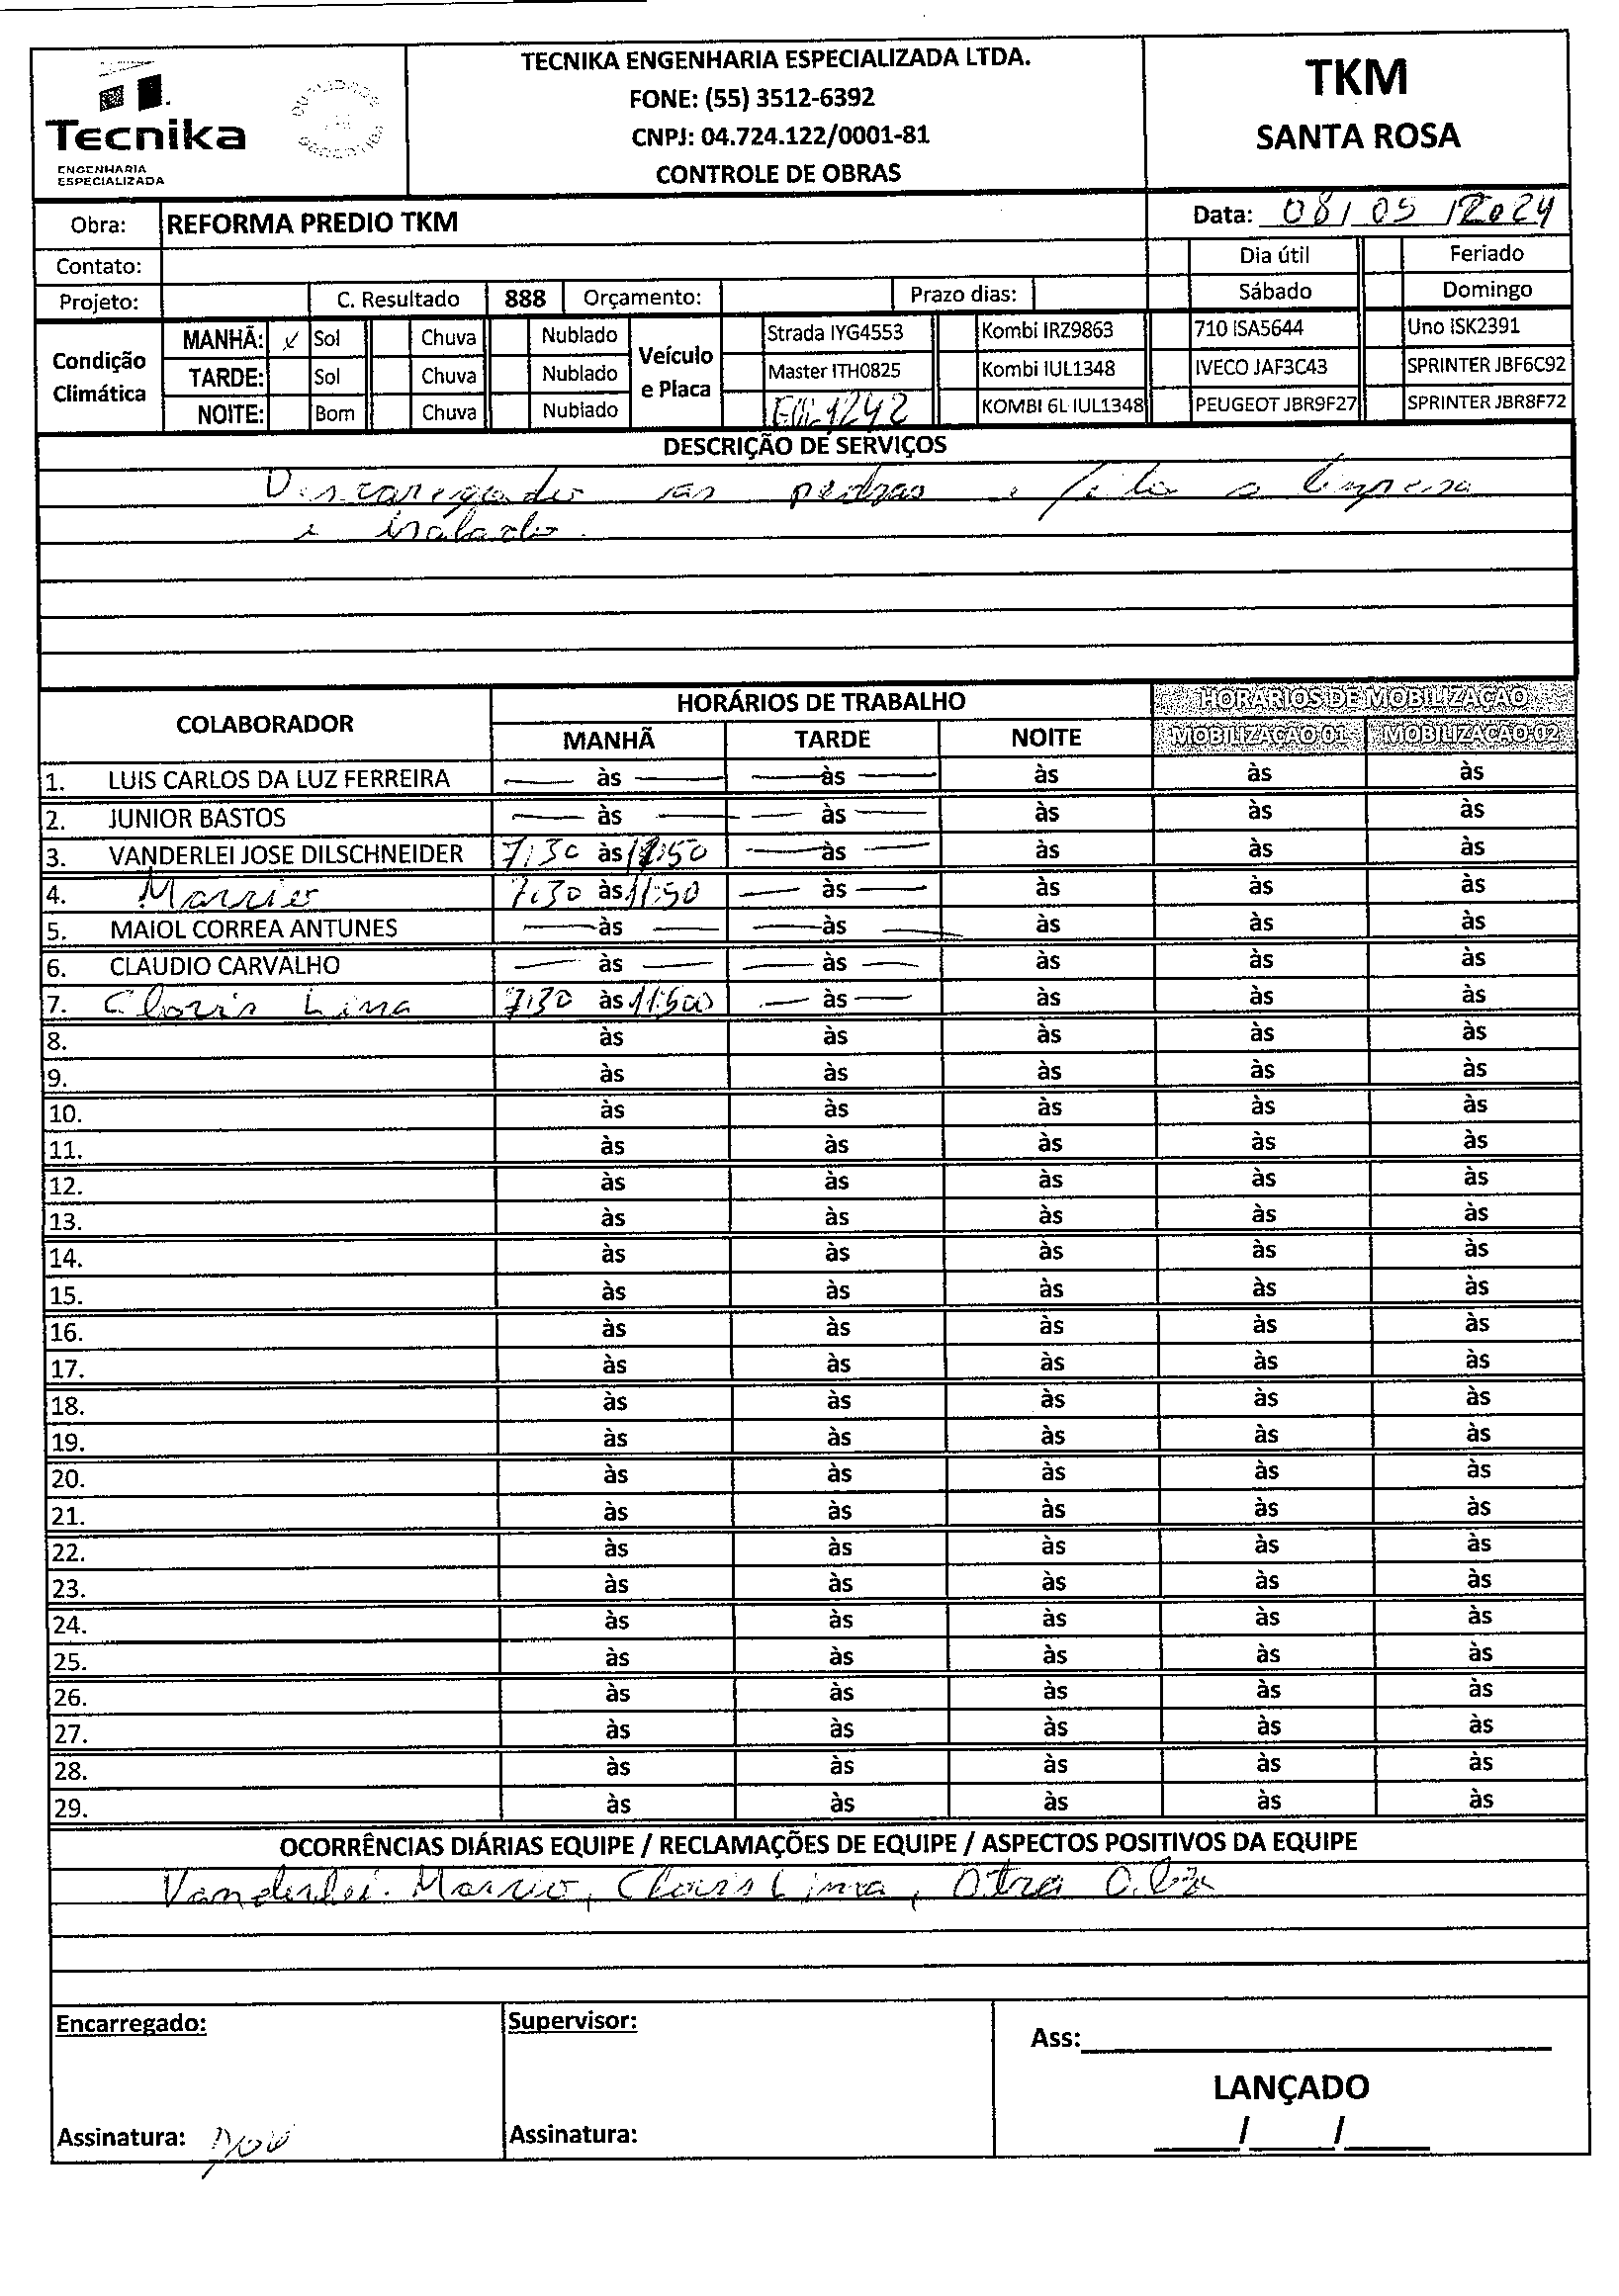 TECNIKA ENGENHARIA ESPECIALIZADA LTDA.
FONE: (55) 3512-6392
CNPJ: 04.724.122/0001-81
CONTROLE DE OBRAS
Tecnika
ENGENHARIA
ESPECIALIZADA
TKM
SANTA ROSA
Obra: REFORMA PREDIO TKM
Data: 08/05/2024
Contato:
Dia útil Feriado
Projeto: C. Resultado 888 Orçamento: Prazo dias: Sábado Domingo
Condição Climática
MANHÃ: x Sol Chuva Nublado
TARDE: Sol Chuva Nublado
NOITE: Bom Chuva Nublado
Veículo e Placa
Strada IYG4553 Kombi IRZ9863 710 ISA5644 Uno ISK2391
Master ITH0825 Kombi IUL1348 IVECO JAF3C43 SPRINTER JBF6C92
1242 KOMBI 6L IUL1348 PEUGEOT JBR9F27 SPRINTER JBR8F72
DESCRIÇÃO DE SERVIÇOS
as pedras e a limpesa
e
COLABORADOR HORÁRIOS DE TRABALHO HORÁRIOS DE MOBILIZAÇÃO
MANHÃ TARDE NOITE MOBILIZAÇÃO 01 MOBILIZAÇÃO 02
1. LUIS CARLOS DA LUZ FERREIRA — às — — às — às às às
2. JUNIOR BASTOS — às — — às — às às às
3. VANDERLEI JOSE DILSCHNEIDER 7:30 às 11:50 — às — às às às
4. Marrio 7:30 às 11:50 — às — às às às
5. MAIOL CORREA ANTUNES — às — — às — às às às
6. CLAUDIO CARVALHO — às — — às — às às às
7. Clovis Lima 7:30 às 11:500 — às — às às às
8. às às às às às
9. às às às às às
10. às às às às às
11. às às às às às
12. às às às às às
13. às às às às às
14. às às às às às
15. às às às às às
16. às às às às às
17. às às às às às
18. às às às às às
19. às às às às às
20. às às às às às
21. às às às às às
22. às às às às às
23. às às às às às
24. às às às às às
25. às às às às às
26. às às às às às
27. às às às às às
28. às às às às às
29. às às às às às
OCORRÊNCIAS DIÁRIAS EQUIPE / RECLAMAÇÕES DE EQUIPE / ASPECTOS POSITIVOS DA EQUIPE
Vanderlei. Marrio, Clovis Lima, Otra
Encarregado: Supervisor: Ass:
LANÇADO
Assinatura: Assinatura: / /